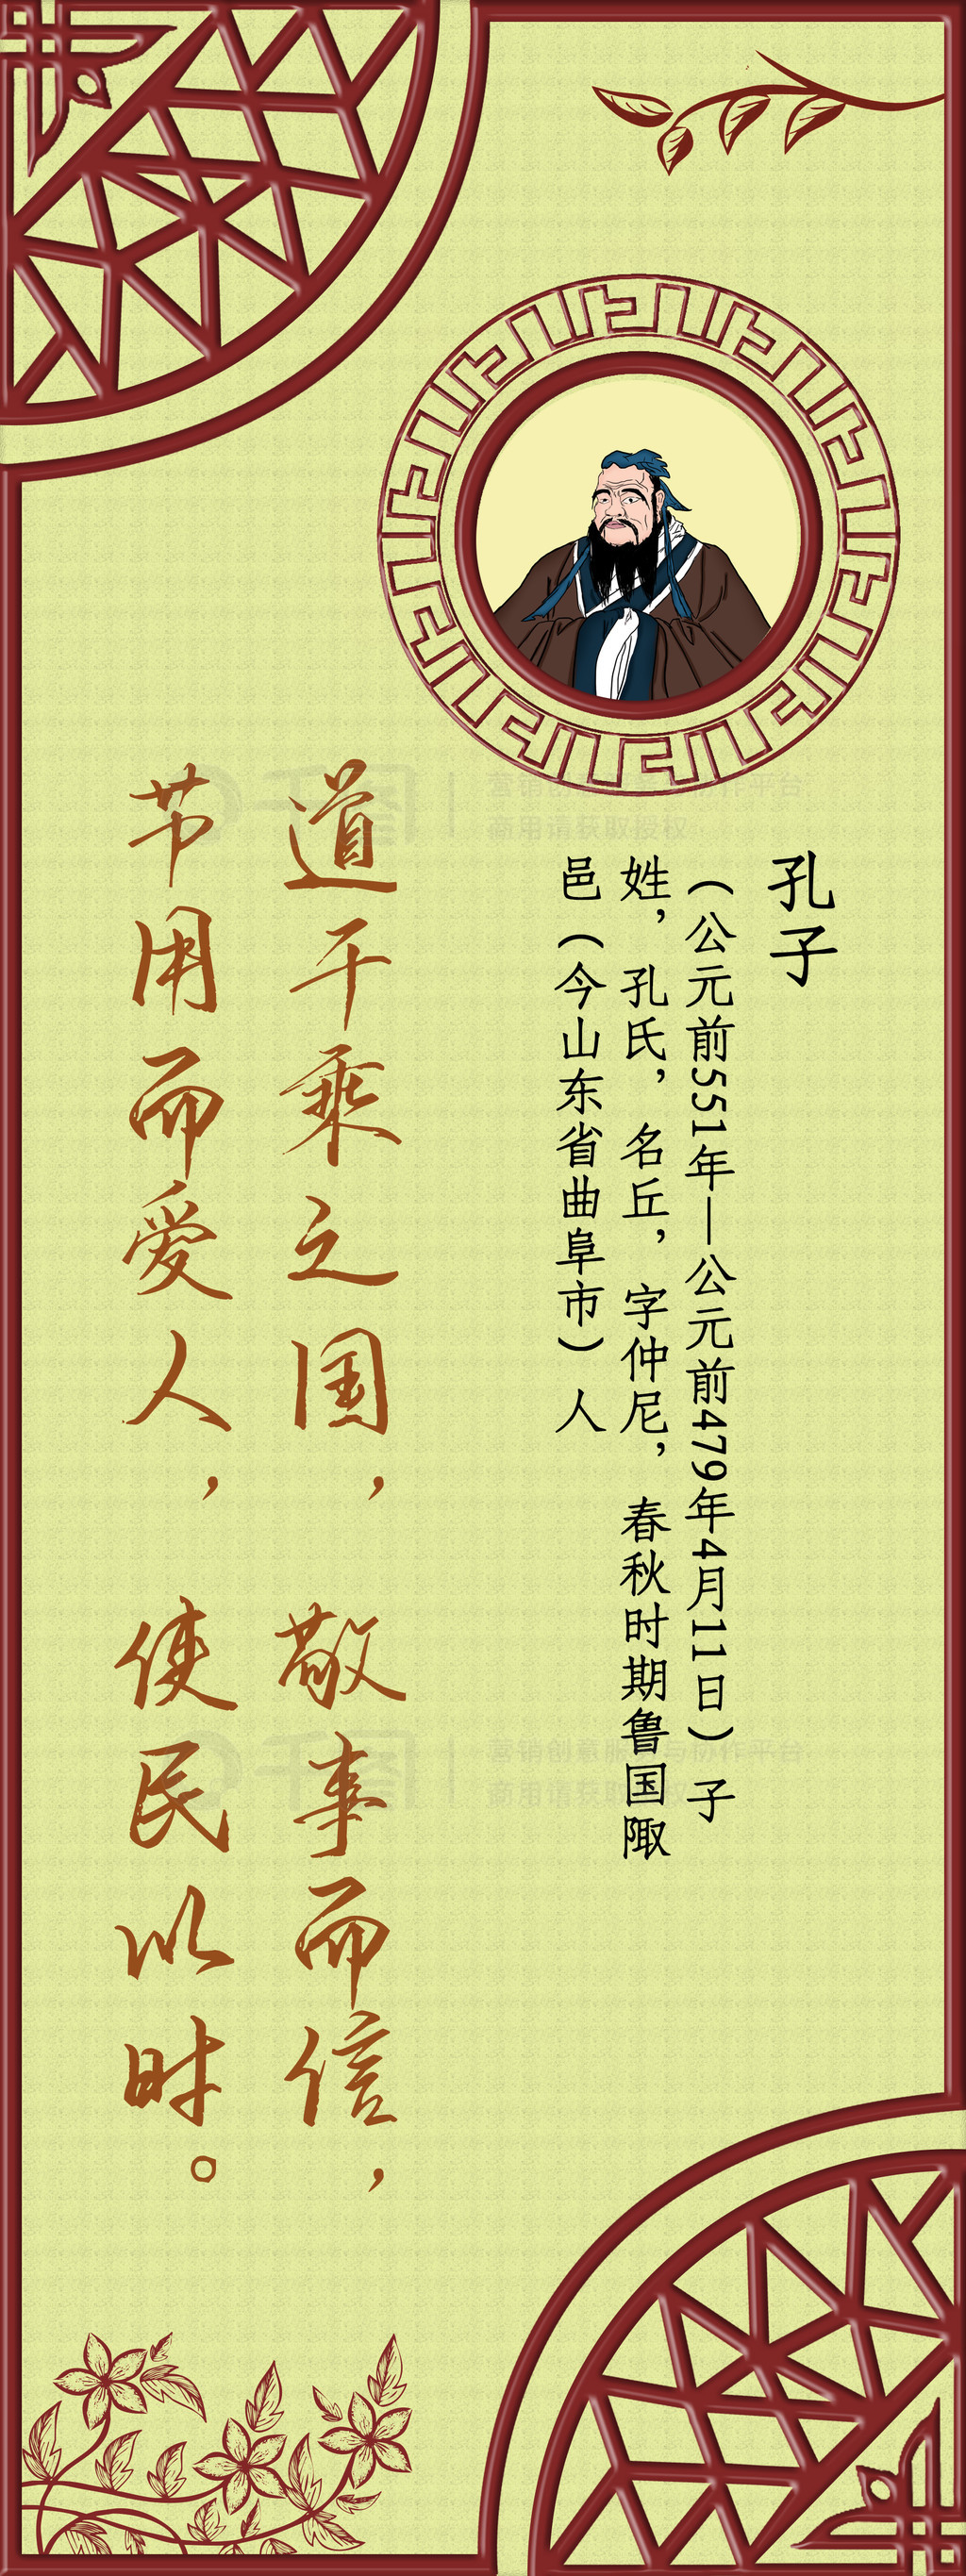 孔子
（公元前551年—公元前479年4月11日）子
姓，孔氏，名丘，字仲尼，春秋时期鲁国陬
邑（今山东省曲阜市）人
道千乘之国，敬事而信，
节用而爱人，使民以时。
千图
营销创意服务与协作平台
商用请获取授权
千图
营销创意服务与协作平台
商用请获取授权